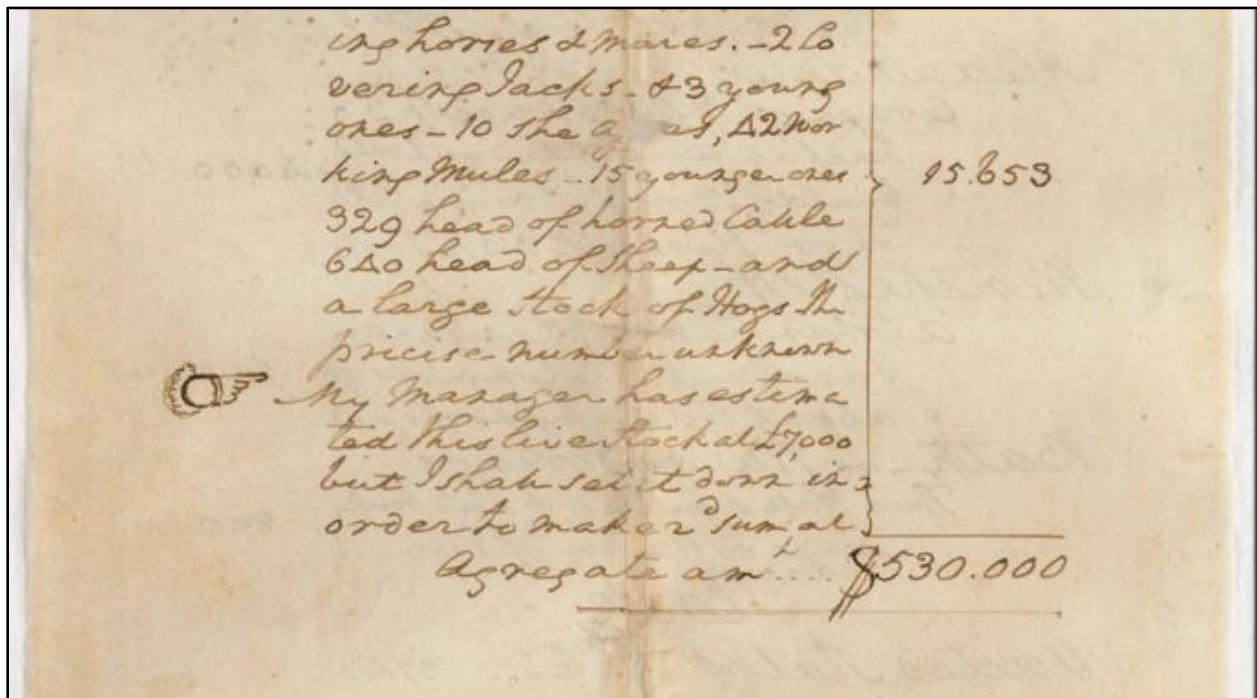 ing horses & mares. - 2 Co
vering Jacks - & 3 young
ones - 10 she as, 42 Wor
king Mules - 15 younger ones
15.653
329 head of horned Cattle
640 head of Sheep - and
a large Stock of Hogs the
precise number unknown
My Manager has estima
ted this live stock at £7,000
but I shall set it down in
order to make rd sum at
Agregate amt .... $530.000